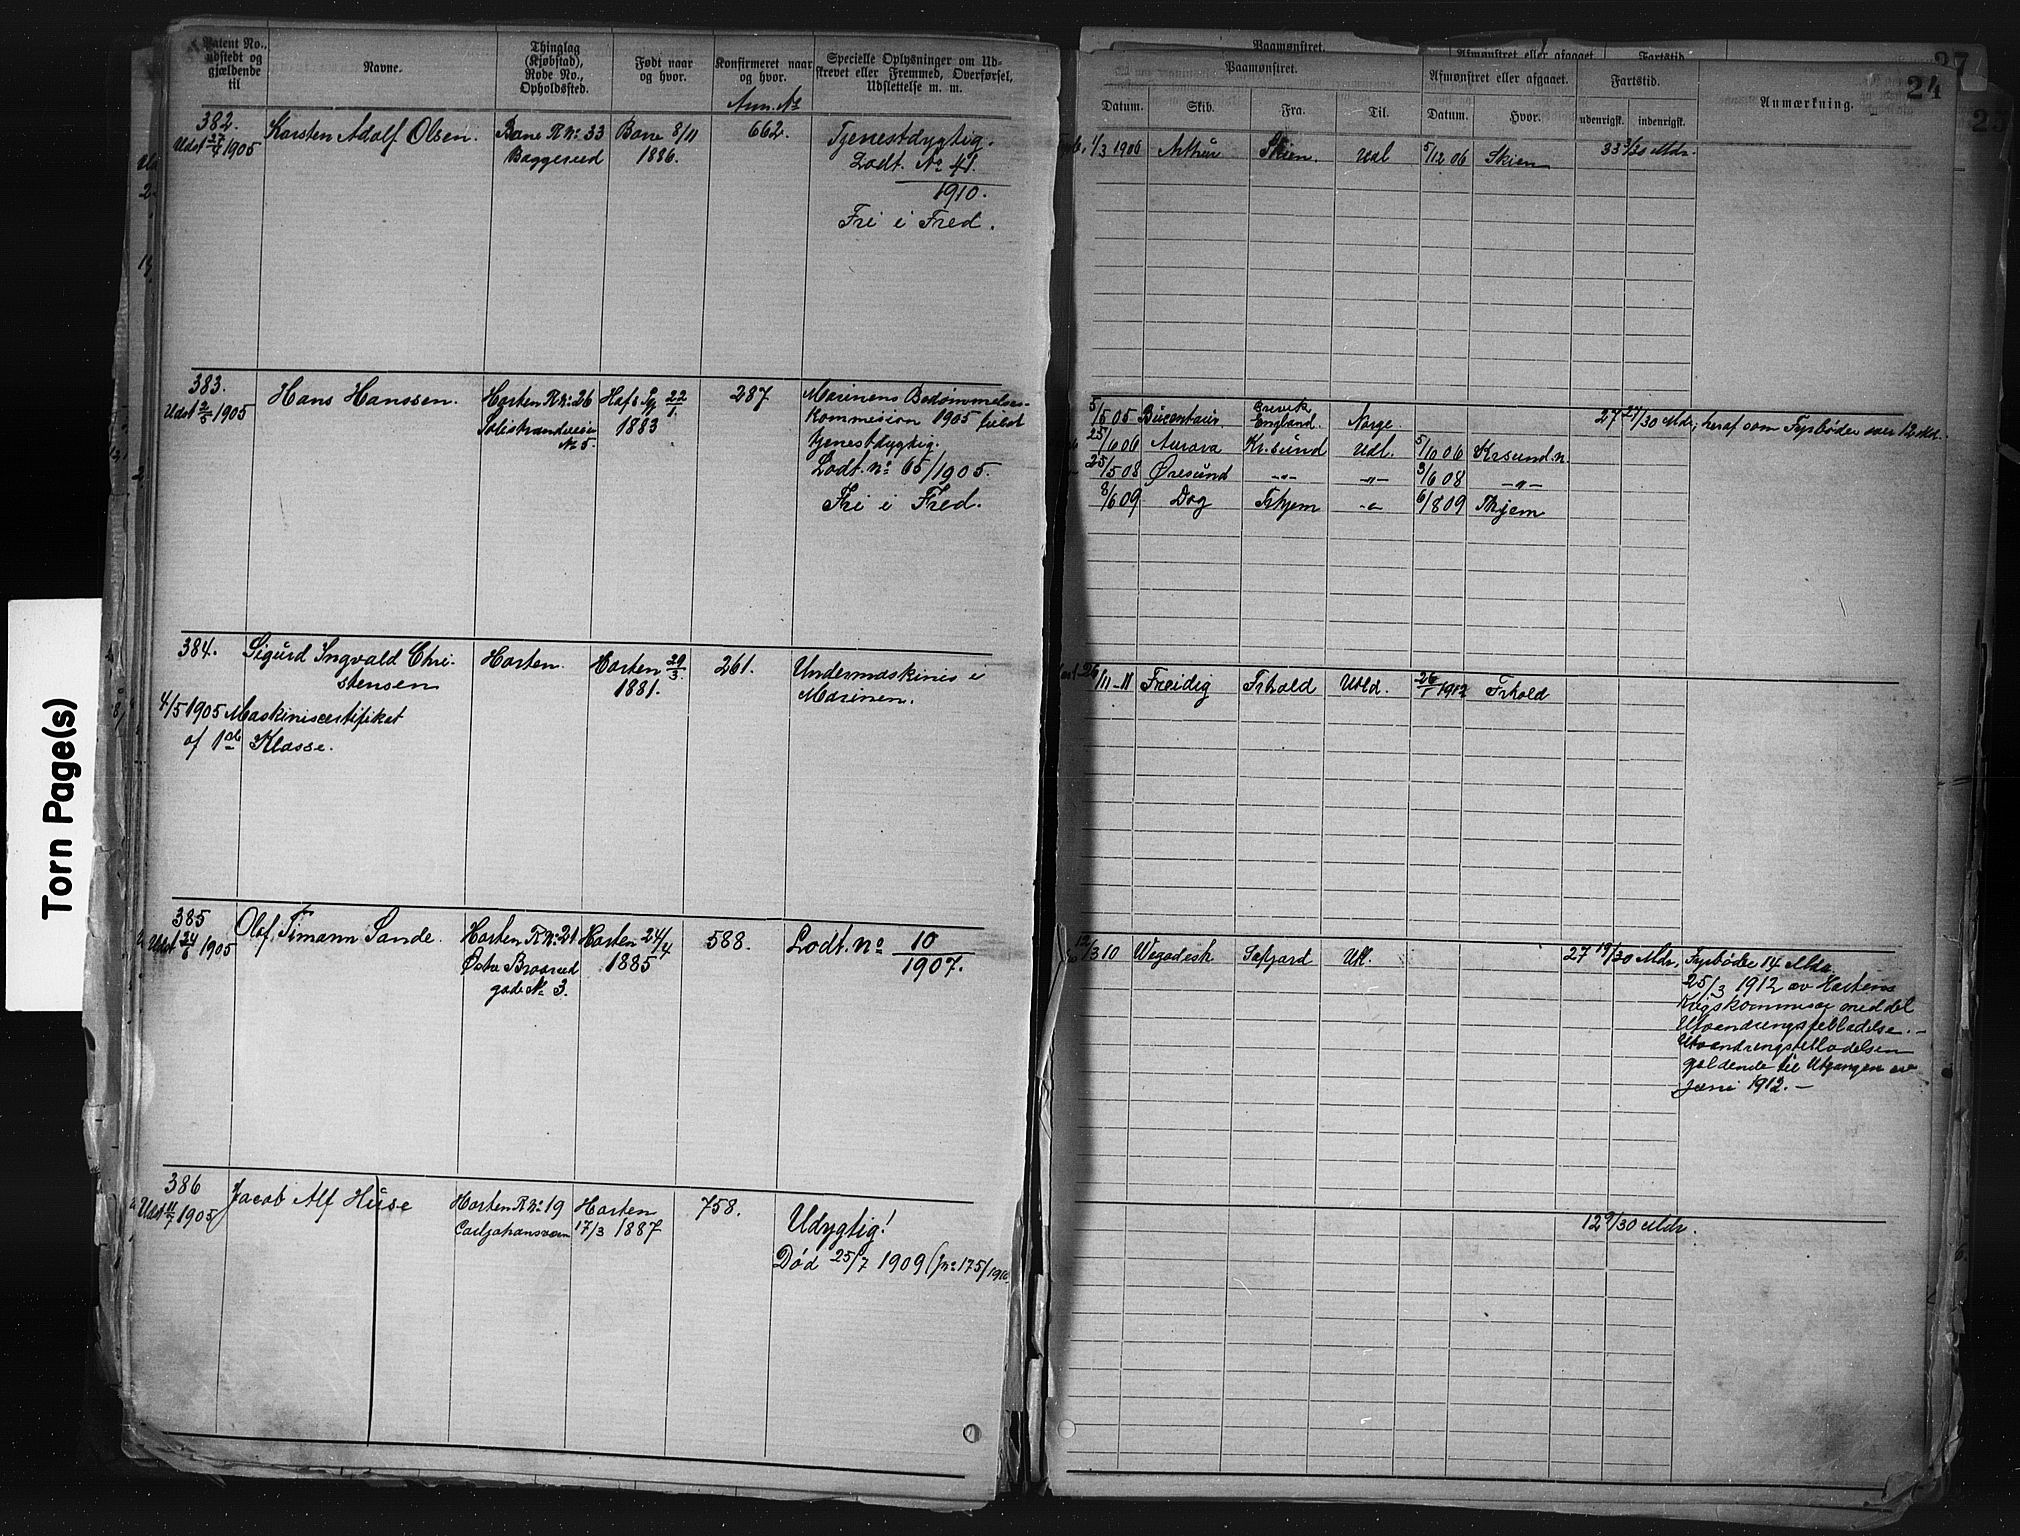 Torn Page(s)
Patent No., udstedt og gjældende til
Navne.
Thinglag (Kjøbstad), Rode No., Opholdssted.
Født naar og hvor.
Konfirmeret naar og hvor.
Ann. No
Specielle Oplysninger om Udskrevet eller Fremmed, Overførsel, Udslettelse m. m.
382.
1905
Karsten Adolf Olsen.
Borre R No 33
Baggerud
Borre 8/11
1886.
662.
Tjenestdygtig.
Lodt. No 41.
1910.
Fri i Fred.
383.
Udst 2/5 1905
Hans Hanssen.
Horten R No 26
No 5.
22/1
1883
287
Marinens Bedømmelses-
Kommision 1905 fuldt
tjenestdygtig.
Lodt. no 65/1905.
Fri i Fred.
384.
Sigurd Ingvald Chri-
stensen
Horten.
Horten 29/3
1881.
261.
Undermaskinist i
Marinen.
4/5 1905 Maskinistcertifiket
af 1ste Klasse.
385
Udst 24/6 1905
Olaf Timann Sande.
Horten R No 21
Østre Braarud
gade No 3.
Horten 24/4
1885
588.
Lodt. no 10
1907.
386
Udst 11/7 1905
Jacob Alf Huse
Horten R No 19
Carljohansværn
Horten
17/3 1887
758.
Udygtig!
Død 25/7 1909 (jno 175/1910
Paamønstret.
Afmønstret eller afgaaet.
Fartstid.
27
Paamønstret.
Afmønstret eller afgaaet.
Fartstid.
Anmærkning.
24
Datum.
Skib.
Fra.
Til.
Datum.
Hvor.
udenrigsk.
indenrigsk.
1/3 1906 Arthur Skien. Udl 5/12 06 Skien 33 Mdr.
5/5 05 Bucentaur England. Norge. 27 /30 Mdr, heraf som Fyrbøder over 12 Mdr.
25/6 06 Aurora Kr.sund Udl. 5/10 06 Krsund.n.
25/5 08 Øresund -"- -"- 3/6 08 -"-
8/6 09 Dag Trhjem -"- 6/8 09 Thjem
26/11-11 Freidig Frhald Utld. 26/1 1912 Frhald
12/3 10 Sefjord Utl. 27 19/30 Mdr. Fyrbøder 14 Mdr.
25/3 1912 av Hortens
Krigskommisær meddelt
Utvandringstilladelse. -
Utvandringstilladelsen
gjældende til Utgangen av
Juni 1912. -
12 9/30 Mdr.